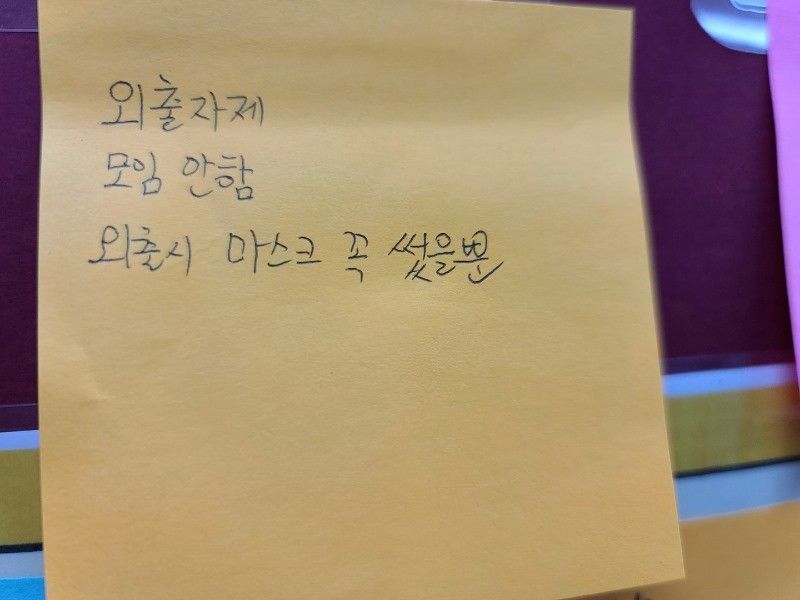 외출자제
모임 안함
외출시 마스크 꼭 썼을뿐